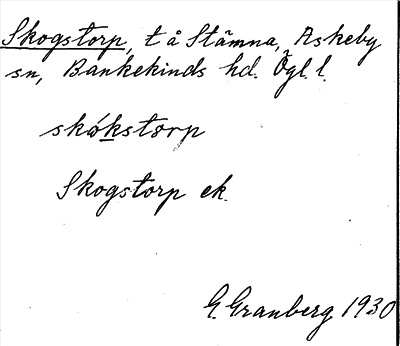 Skogstorp, t å Stämna, Askeby
sn, Bankekinds hd. Ögl. l.
skókstorp
Skogstorp ek.
G. Granberg 1930